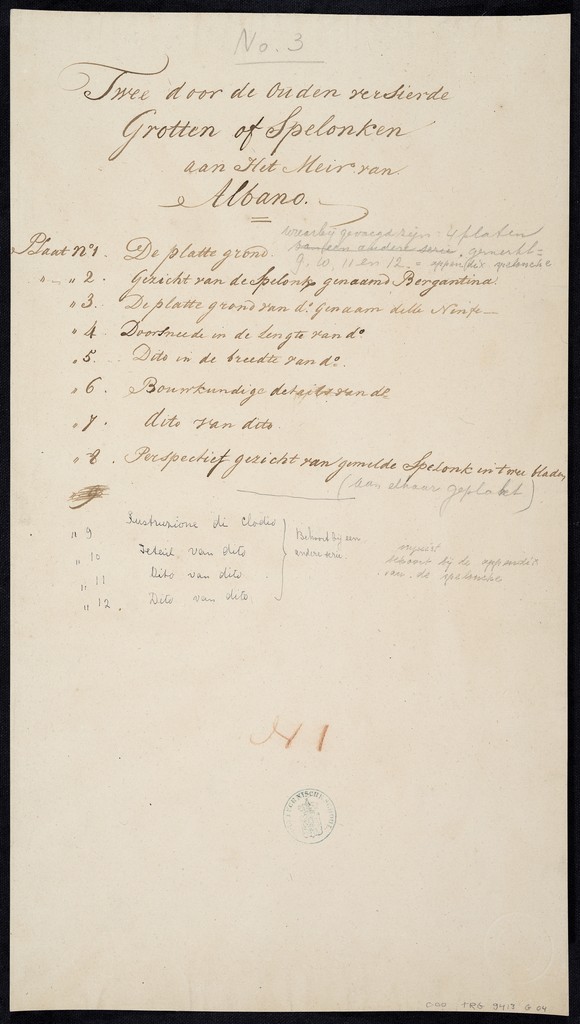 No. 3
Twee door de Ouden versierde
Grotten of Spelonken
aan Het Meir van
Albano.
waarbij gevoegd zijn: 4 platen
van een andere serie, gemerkt =
9. 10, 11 en 12. = appendix spelonche
Plaat no 1. De platte grond.
" — " 2. Gezicht van de Spelonk genaamd Bergantina.
" 3. De platte grond van do. Genaam delle Ninfe —
" 4. Doorsneede in de lengte van do
" 5. Dito in de breedte van do.
" 6. Bouwkundige details van do
" 7. dito van dito.
" 8. Perspectief gezicht van gemelde Spelonk in twee bladen
(aan elkaar geplakt)
" 9 di Clodio
" 10 Detail van dito
" 11 Dito van dito
" 12. Dito van dito
Behoord bij een
andere serie.
onjuist
behoort bij de appendix
van de spelonche
N 1
TECHNISCHE
TRG 3413 G 04